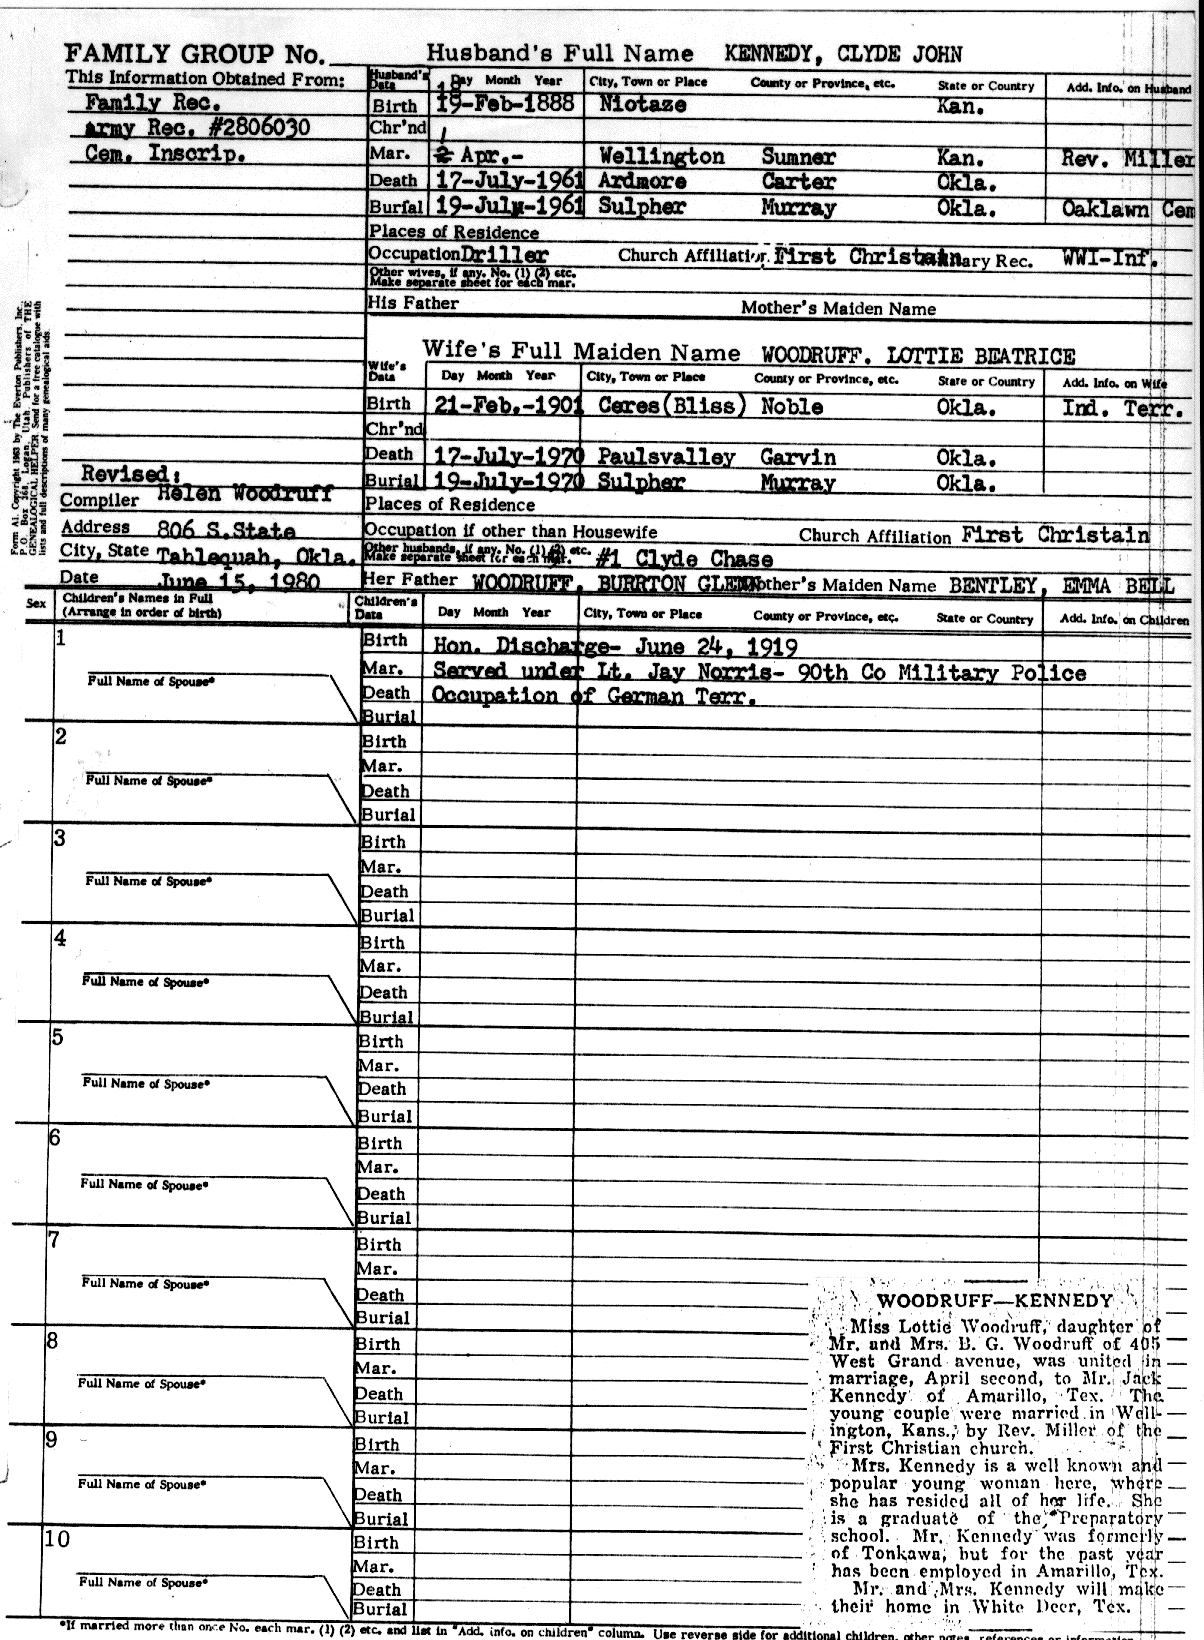 FAMILY GROUP No. Husband's Full Name KENNEDY, CLYDE JOHN
This Information Obtained From: Husband's Data Day Month Year City, Town or Place County or Province, etc. State or Country Add. Info. on Husband
18
Family Rec. Birth 19-Feb-1888 Niotaze Kan.
Army Rec. #2806030 Chr'nd
1
Cem. Inscrip. Mar. 2 Apr.- Wellington Sumner Kan. Rev. Miller
Death 17-July-1961 Ardmore Carter Okla.
Burial 19-July-1961 Sulpher Murray Okla. Oaklawn Cem
Places of Residence
Occupation Driller Church Affiliation First Christain Military Rec. WWI-Inf.
Other wives, if any. No. (1) (2) etc.
Make separate sheet for each mar.
His Father Mother's Maiden Name
Form A1. Copyright 1963 by The Everton Publishers, Inc.,
P.O. Box 368, Logan, Utah. Publishers of THE
GENEALOGICAL HELPER. Send for a free catalogue with
lists and full descriptions of many genealogical aids.
Wife's Full Maiden Name WOODRUFF. LOTTIE BEATRICE
Wife's Data Day Month Year City, Town or Place County or Province, etc. State or Country Add. Info. on Wife
Birth 21-Feb.-1901 Ceres(Bliss) Noble Okla. Ind. Terr.
Chr'nd
Death 17-July-1970 Paulsvalley Garvin Okla.
Revised: Burial 19-July-1970 Sulpher Murray Okla.
Compiler Helen Woodruff Places of Residence
Address 806 S.State Occupation if other than Housewife Church Affiliation First Christain
City, State Tahlequah, Okla. Other husbands, if any. No. (1) (2) etc. Make separate sheet for each mar. #1 Clyde Chase
Date June 15, 1980 Her Father WOODRUFF, BURRTON GLENN Mother's Maiden Name BENTLEY, EMMA BELL
Sex Children's Names in Full (Arrange in order of birth) Children's Data Day Month Year City, Town or Place County or Province, etc. State or Country Add. Info. on Children
1 Birth Hon. Discharge- June 24, 1919
Full Name of Spouse* Mar. Served under Lt. Jay Norris- 90th Co Military Police
Death Occupation of German Terr.
Burial
2 Birth
Mar.
Full Name of Spouse*
Death
Burial
3 Birth
Mar.
Full Name of Spouse*
Death
Burial
4 Birth
Mar.
Full Name of Spouse*
Death
Burial
5 Birth
Mar.
Full Name of Spouse*
Death
Burial
6 Birth
Mar.
Full Name of Spouse*
Death
Burial
7 Birth
Mar.
Full Name of Spouse*
Death
Burial
8 Birth
Mar.
Full Name of Spouse*
Death
Burial
9 Birth
Mar.
Full Name of Spouse*
Death
Burial
10 Birth
Mar.
Full Name of Spouse*
Death
Burial
WOODRUFF—KENNEDY
Miss Lottie Woodruff, daughter of
Mr. and Mrs. B. G. Woodruff of 405
West Grand avenue, was united in
marriage, April second, to Mr. Jack
Kennedy of Amarillo, Tex. The
young couple were married in Well-
ington, Kans., by Rev. Miller of the
First Christian church.
Mrs. Kennedy is a well known and
popular young woman here, where
she has resided all of her life. She
is a graduate of the Preparatory
school. Mr. Kennedy was formerly
of Tonkawa, but for the past year
has been employed in Amarillo, Tex.
Mr. and Mrs. Kennedy will make
their home in White Deer, Tex.
*If married more than once No. each mar. (1) (2) etc. and list in "Add. info. on children" column. Use reverse side for additional children, other notes, references or information